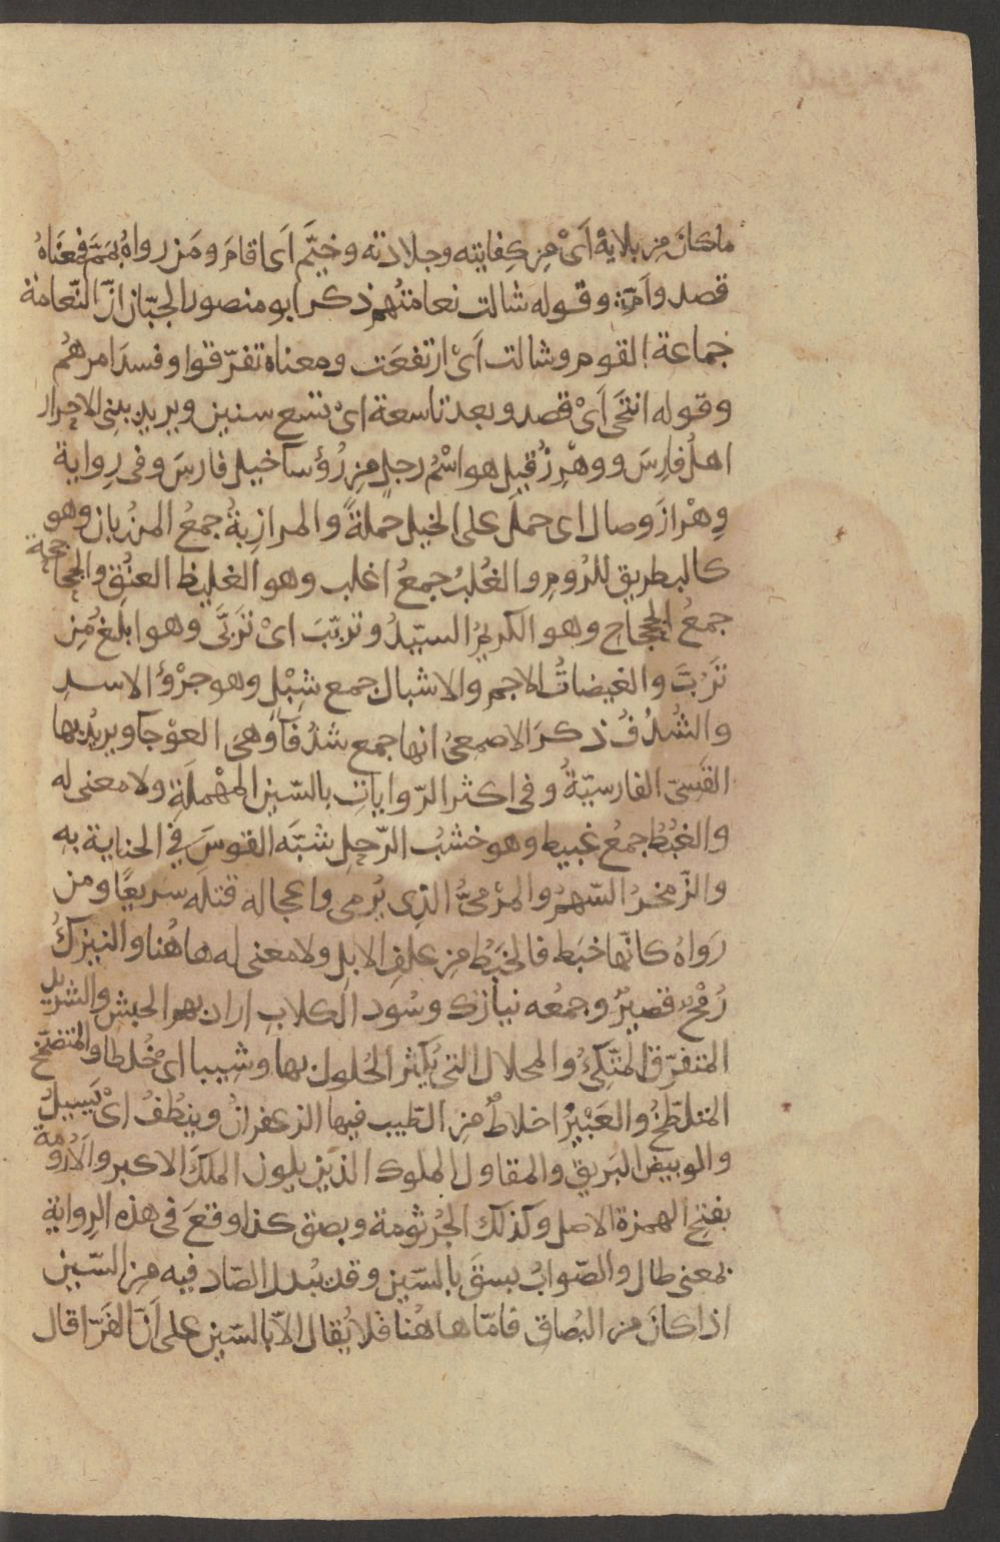 ماكان من بلاية أىْ مِن كِفايته وجلادته وخيَّم أَى اقامَ ومَن رواهُ يمَّم فمعناهُ
قصد وأمّ وقوله شالت نعامتُهم ذكر ابو منصور الجبّان انّ النّعامة
جماعة القوم وشالت أىْ ارتفعَت ومعناه تفرّقوا وفسدَ امرهُم
وقوله انتحَى أىْ قصد وبعد تاسعة اىْ تسع سنين ويريد ببنِى الاحرار
اهلُ فارِسَ ووهْرِز قيل هو اسْمُ رجلٍ مِن رُؤسآ خيل فارسَ وفى رِواية
وِهْرازَ وصال اى حملَ على الخيل حملةً والمرازِبةُ جمعُ المرزُبان وهو
كالبطريق للرُوم والغُلبُ جمعُ اغلب وهو الغليظ العنُق والجحاجحة
جمعُ الجحجاح وهو الكريمُ السيّدُ وتربّبَ اىْ تربَّى وهو ابلغُ مِن
تَربَّ والغيضاتُ الاجم والاشبال جمع شِبْلٍ وهو جرْؤُ الاسدِ
والشُدُفُ ذكرَ الاصمعىُ انها جمع شدْفَآ وَهىَ العوْجآ ويريدُ بها
القسىّ الفارسيّةُ وفى اكثر الرّواياتِ بالسّين المهْملَةِ ولا معنى له
والغبُطُ جمعُ غبيط وهو خشبُ الرّحلِ شبَّه القوسَ فى الحناية بهِ
والزّمخرُ السّهمُ والمرْمىُّ الذى يُرمى واعجاله قتله سريعًا ومن
رَواهُ كانّها خبَط فالخبَطُ مِن علفِ الابلِ ولا معنى له هاهُنا والنيزكُ
رُمْحٌ قصيرٌ وجمعه نيازك وسُود الكلابِ اراد بهم الحبش والشريدُ
المتفرّق المتّكِئُ والمحلال التى يُكثر الحُلول بها وشِيبا اىْ خُلطا والمتضمّخ
المتلطّخُ والعَبيْرُ اخلاطٌ مِن الطّيب فيها الزعفرانُ وينطُفُ اىْ يَسيلُ
والوبيضُ البَريق والمقاول الملوك الذين يلون الملكَ الاكبر والَارُومة
بفتح الهمزة الاصل وكذلك الجُرثومة وبصق كذا وقعَ فى هذه الرِواية
بمعنى طال والصّوابُ بسقَ بالسّين وقد يُبدل الصّاد فيه مِن السّين
اذا كانَ من البُصاقِ فامّا هاهُنا فلا يُقال الاّ بالسّين على أنّ الفَرّا قال